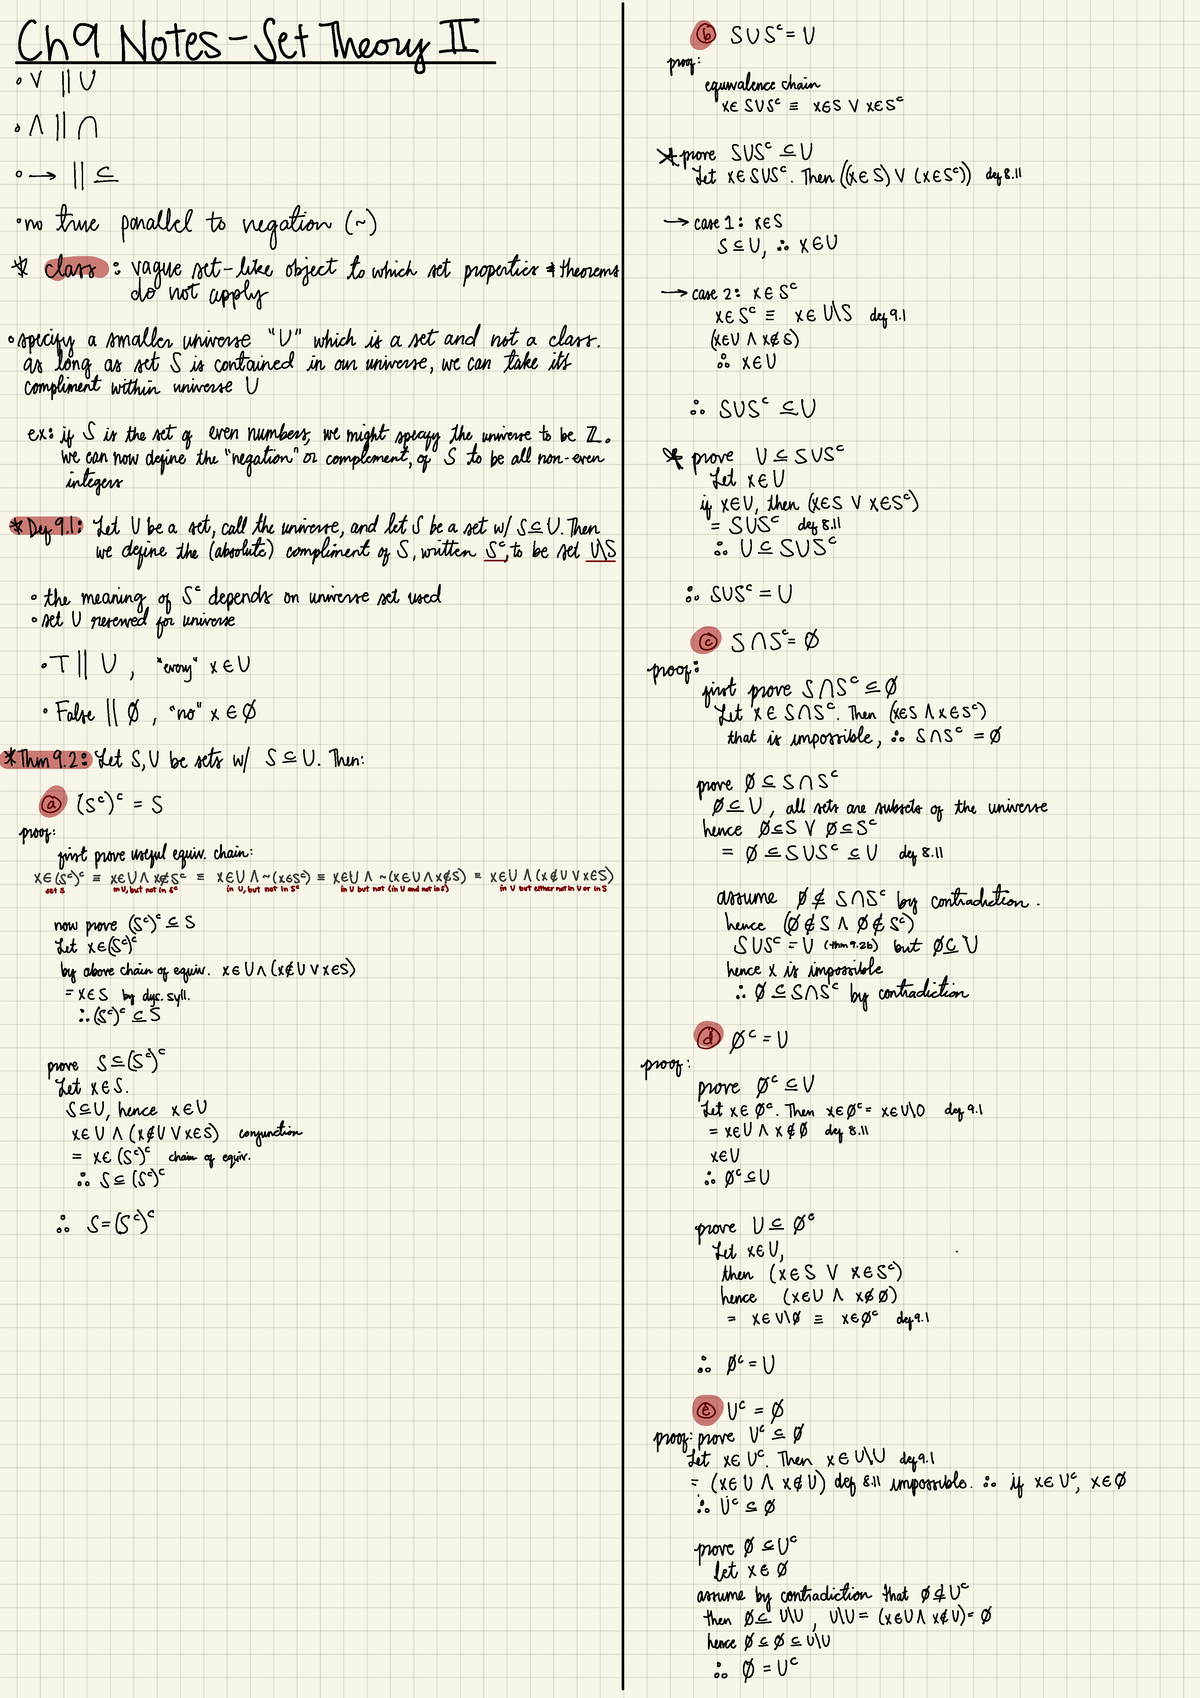 Ch 9 Notes - Set Theory II
• ∨ || ∪
• ∧ || ∩
• → || ⊆
• no true parallel to negation (~)
* class: vague set-like object to which set properties & theorems
do not apply
• specify a smaller universe "U" which is a set and not a class.
as long as set S is contained in our universe, we can take its
compliment within universe U
ex: if S is the set of even numbers, we might specify the universe to be ℤ.
we can now define the "negation" or complement, of S to be all non-even
integers
* Def 9.1: Let U be a set, call the universe, and let S be a set w/ S⊆U. Then
we define the (absolute) compliment of S, written Sᶜ, to be set U\S
• the meaning of Sᶜ depends on universe set used
• set U reserved for universe
• T || U , "every" x∈U
• False || ∅ , "no" x∈∅
* Thm 9.2: Let S,U be sets w/ S⊆U. Then:
ⓐ (Sᶜ)ᶜ = S
proof:
first prove useful equiv. chain:
x∈(Sᶜ)ᶜ ≡ x∈U∧x∉Sᶜ ≡ x∈U∧~(x∈Sᶜ) ≡ x∈U∧~(x∈U∧x∉S) ≡ x∈U∧(x∉U∨x∈S)
set S in U, but not in Sᶜ in U, but not in Sᶜ in U but not (in U and not in S) in U but either not in U or in S
now prove (Sᶜ)ᶜ ⊆ S
Let x∈(Sᶜ)ᶜ
by above chain of equiv. x∈U∧(x∉U∨x∈S)
= x∈S by dys. syll.
∴ (Sᶜ)ᶜ ⊆ S
prove S⊆(Sᶜ)ᶜ
Let x∈S.
S⊆U, hence x∈U
x∈U∧(x∉U∨x∈S) conjunction
= x∈(Sᶜ)ᶜ chain of equiv.
∴ S⊆(Sᶜ)ᶜ
∴ S=(Sᶜ)ᶜ
ⓑ S∪Sᶜ = U
proof:
equivalence chain
x∈S∪Sᶜ ≡ x∈S ∨ x∈Sᶜ
* prove S∪Sᶜ ⊆ U
Let x∈S∪Sᶜ. Then ((x∈S)∨(x∈Sᶜ)) def 8.11
→ case 1: x∈S
S⊆U, ∴ x∈U
→ case 2: x∈Sᶜ
x∈Sᶜ ≡ x∈U\S def 9.1
(x∈U ∧ x∉S)
∴ x∈U
∴ S∪Sᶜ ⊆ U
* prove U⊆S∪Sᶜ
Let x∈U
if x∈U, then (x∈S ∨ x∈Sᶜ)
= S∪Sᶜ def 8.11
∴ U⊆S∪Sᶜ
∴ S∪Sᶜ = U
ⓒ S∩Sᶜ = ∅
proof:
first prove S∩Sᶜ ⊆ ∅
Let x∈S∩Sᶜ. Then (x∈S∧x∈Sᶜ)
that is impossible, ∴ S∩Sᶜ = ∅
prove ∅⊆S∩Sᶜ
∅⊆U, all sets are subsets of the universe
hence ∅⊆S ∨ ∅⊆Sᶜ
= ∅⊆S∪Sᶜ⊆U def 8.11
assume ∅⊄S∩Sᶜ by contradiction.
hence (∅⊄S ∧ ∅⊄Sᶜ)
S∪Sᶜ = U (thm 9.2b) but ∅⊆U
hence x is impossible
∴ ∅⊆S∩Sᶜ by contradiction
ⓓ ∅ᶜ = U
proof:
prove ∅ᶜ⊆U
Let x∈∅ᶜ. Then x∈∅ᶜ = x∈U\0 def 9.1
= x∈U∧x∉∅ def 8.11
x∈U
∴ ∅ᶜ⊆U
prove U⊆∅ᶜ
Let x∈U,
then (x∈S ∨ x∈Sᶜ)
hence (x∈U ∧ x∉∅)
= x∈U\∅ ≡ x∈∅ᶜ def 9.1
∴ ∅ᶜ = U
ⓔ Uᶜ = ∅
proof: prove Uᶜ⊆∅
Let x∈Uᶜ. Then x∈U\U def 9.1
= (x∈U ∧ x∉U) def 8.11 impossible. ∴ if x∈Uᶜ, x∈∅
∴ Uᶜ⊆∅
prove ∅⊆Uᶜ
let x∈∅
assume by contradiction that ∅⊄Uᶜ
then ∅⊆U\U, U\U = (x∈U∧x∉U) = ∅
hence ∅⊆∅⊆U\U
∴ ∅ = Uᶜ